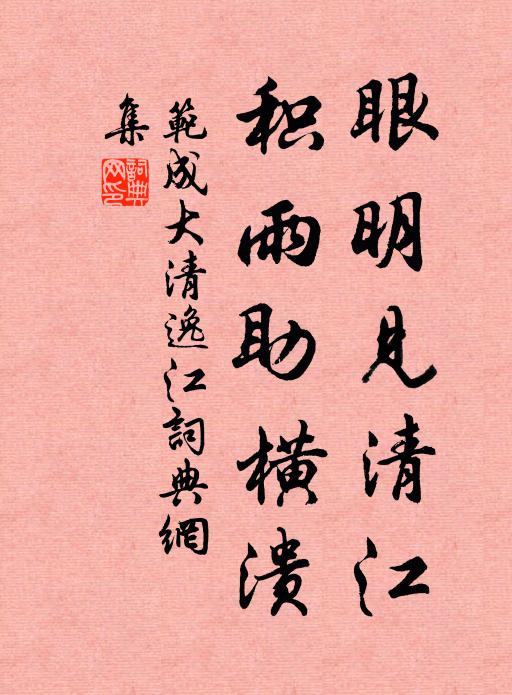 眼明見清江
积雨助橫潰
範成大清逸江詞典網
集
詞典网印